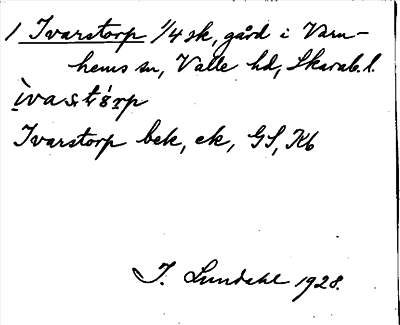 1 Ivarstorp 1/4 sk, gård i Varn-
hems sn, Valle hd, Skarab. l.
Ivarstorp bek, ek, GS, Kb
I. Lundahl 1928.